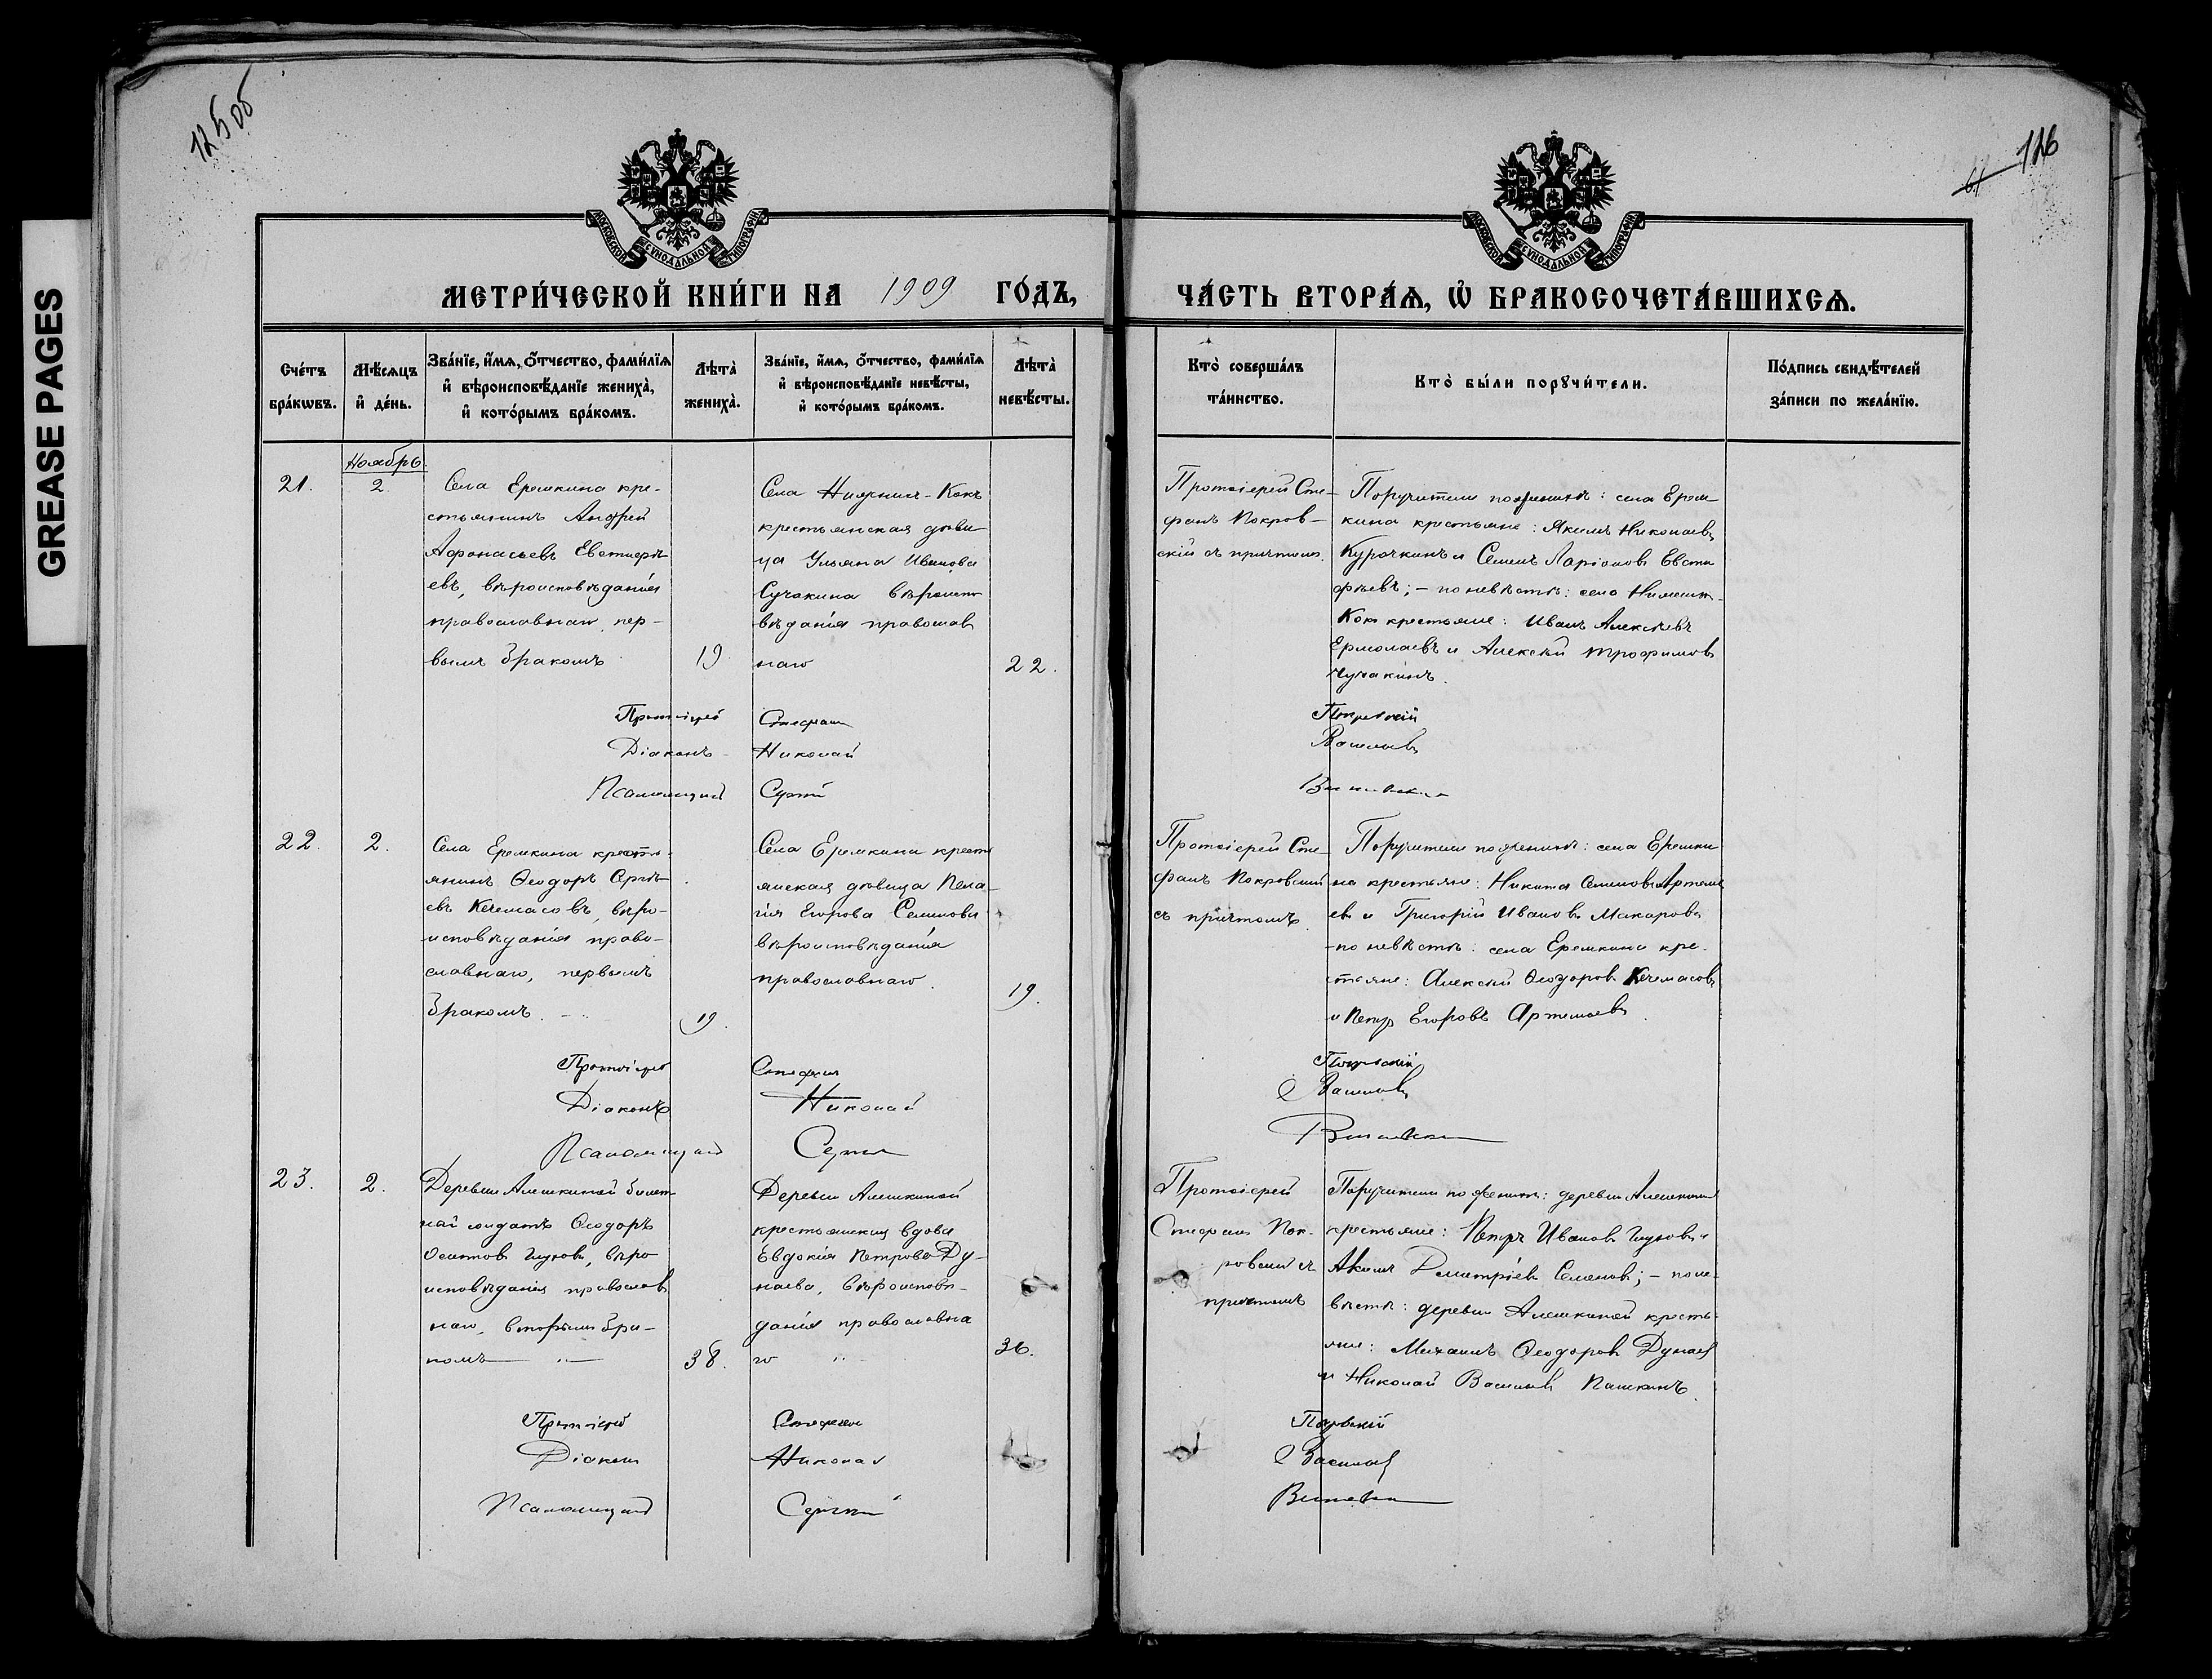 GREASE PAGES
125 об
126
61
МОСКОВСКОЙ СУНОДАЛЬНОЙ ТИПОГРАФІИ
МОСКОВСКОЙ СУНОДАЛЬНОЙ ТИПОГРАФІИ
МЕТРИ́ЧЕСКОЙ КНИ́ГИ НА 1909 ГО́ДЪ,
ЧА́СТЬ ВТОРА́Ѧ, Ѡ БРАКОСОЧЕТА́ВШИХСѦ.
Сче́тъ бра́кѡвъ.
Мѣ́сѧцъ и҆ де́нь.
Зва́нїе, и҆́мѧ, ѻ҆́тчество, фами́лїѧ
и҆ вѣроисповѣ́данїе жениха̀,
и҆ кото́рымъ бра́комъ.
Лѣта̀ жениха̀.
Зва́нїе, и҆́мѧ, ѻ҆́тчество, фами́лїѧ
и҆ вѣроисповѣ́данїе невѣ́сты,
и҆ кото́рымъ бра́комъ.
Лѣта̀ невѣ́сты.
Кто̀ соверша́лъ
та́инство.
Кто̀ бы́ли порꙋчи́тели.
По́дпись свидѣ́телей
за́писи по жела́нїю.
Ноябрь.
21.
2.
Села Еремкина кре-
стьянинъ Андрей
Афонасьевъ Евстифѣ-
евъ, вѣроисповѣданія
православнаго, пер-
вымъ бракомъ
19
крестьянская дѣви-
ца Ульяна Иванова
вѣроиспо
вѣданія православ
наго
22.
Протоіерей Сте-
фанъ Покров-
скій съ причтомъ.
Поручители по женихѣ: села Ерем-
кина крестьяне: Якимъ Николаевъ
Курочкинъ и Семенъ Ларіоновъ Евсти
фѣевъ; – по невѣстѣ: села
крестьяне: Иванъ Алексѣевъ
Ермолаевъ и Алексѣй Трофимовъ
Протоіерей Стефанъ Покровскій
Діаконъ Николай Васильевъ
Псаломщикъ Сергѣй
22.
2.
Села Еремкина кресть-
янинъ Ѳеодоръ Сергѣ-
евъ Кечемасовъ, вѣро-
исповѣданія право-
славнаго, первымъ
бракомъ.
19.
Села Еремкина кресть
янская дѣвица Пела-
гія Егорова Семенова
вѣроисповѣданія
православнаго.
19.
Протоіерей Сте-
фанъ Покровскій
съ причтомъ.
Поручители по женихѣ: села Еремки
на крестьяне: Никита Семеновъ Артемь
евъ и Григорій Ивановъ Макаровъ
-по невѣстѣ: села Еремкина кре-
стьяне: Алексѣй Ѳеодоровъ Кечемасовъ
и Петръ Егоровъ Артемьевъ.
Протоіерей Стефанъ Покровскій
Діаконъ Николай Васильевъ
Псаломщикъ Сергѣй
23.
2.
Деревни Алешкиной билет
ный солдатъ Ѳеодоръ
вѣро
исповѣданія православ
наго, вторымъ бра-
комъ
38.
Деревни Алешкиной
крестьянская вдова
Евдокія Петрова Ду-
наева, вѣроисповѣ-
данія православна
го
36.
Протоіерей
Стефанъ Пок-
ровскій съ
причтомъ
Поручители по женихѣ: деревни Алешкиной
крестьяне: Петръ Ивановъ
Акимъ Димитріевъ Семеновъ; – по не-
вѣстѣ: деревни Алешкиной кресть-
яне: Михаилъ Ѳеодоровъ Дунаев
и Николай Васильевъ Пашкинъ.
Протоіерей Стефанъ Покровскій
Діаконъ Николай Васильевъ
Псаломщикъ Сергѣй